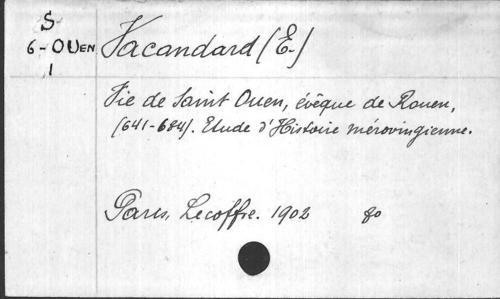 S
6-OUEN
1
Vacandard (E.)
Vie de Saint Ouen, évêque de Rouen,
(641-684). Etude d'Histoire mérovingienne.
Paris, Lecoffre. 1902 8o